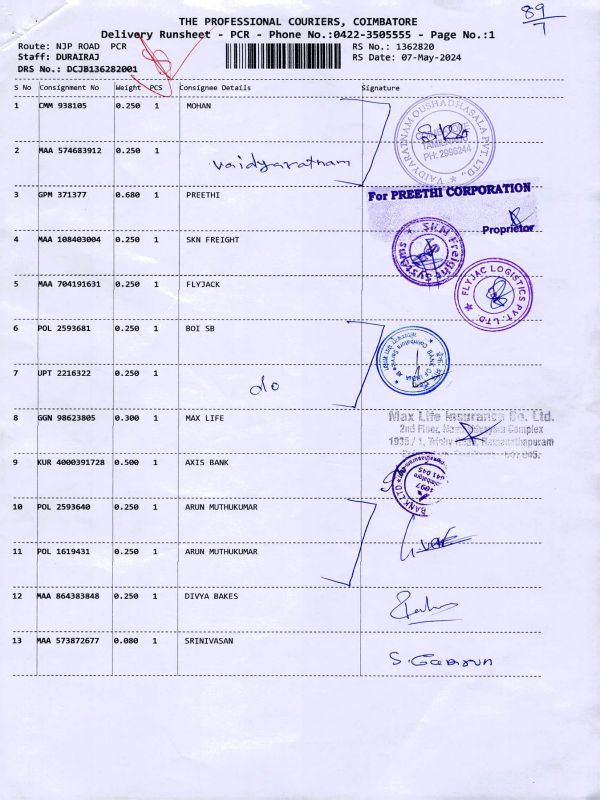 89/7
THE PROFESSIONAL COURIERS, COIMBATORE
Delivery Runsheet - PCR - Phone No.:0422-3505555 - Page No.:1
Route: NJP ROAD PCR
RS No.: 1362820
Staff: DURAIRAJ
RS Date: 07-May-2024
DRS No.: DCJB136282001
S No Consignment No Weight PCS Consignee Details Signature
1 CMM 938105 0.250 1 MOHAN
VAIDYARATNAM OUSHADHASALA PVT LTD.,
PH: 2996244
2 MAA 574683912 0.250 1
Vaidyaratnam
3 GPM 371377 0.680 1 PREETHI
For PREETHI CORPORATION
Proprietor
4 MAA 108403004 0.250 1 SKN FREIGHT
5 MAA 704191631 0.250 1 FLYJACK
FLYJAC LOGISTICS PVT. LTD.
6 POL 2593681 0.250 1 BOI SB
BANK OF INDIA
7 UPT 2216322 0.250 1
do
8 GGN 98623805 0.300 1 MAX LIFE
Max Life Insurance Co. Ltd.
2nd Floor, Complex
1935 / 1, Trichy Road, Ramanathapuram
9 KUR 4000391728 0.500 1 AXIS BANK
BANK LTD
10 POL 2593640 0.250 1 ARUN MUTHUKUMAR
11 POL 1619431 0.250 1 ARUN MUTHUKUMAR
12 MAA 864383848 0.250 1 DIVYA BAKES
13 MAA 573872677 0.080 1 SRINIVASAN